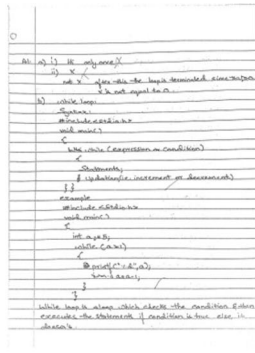 A1. a) i) It only one X
ii) X
not X after this the loop is terminated since
X is not equal to 0.
b) while loop:
Syntax:
#include <stdio.h>
void main()
{
while (expression or condition)
{
Statements;
Updation(i.e. increment or decrement)
} }
example
#include <stdio.h>
void main()
{
int a=5;
while (a>1)
{
printf("%d",a);
}
}
While loop is a loop which checks the condition & then
executes the statements if condition is true else it
doesn't.